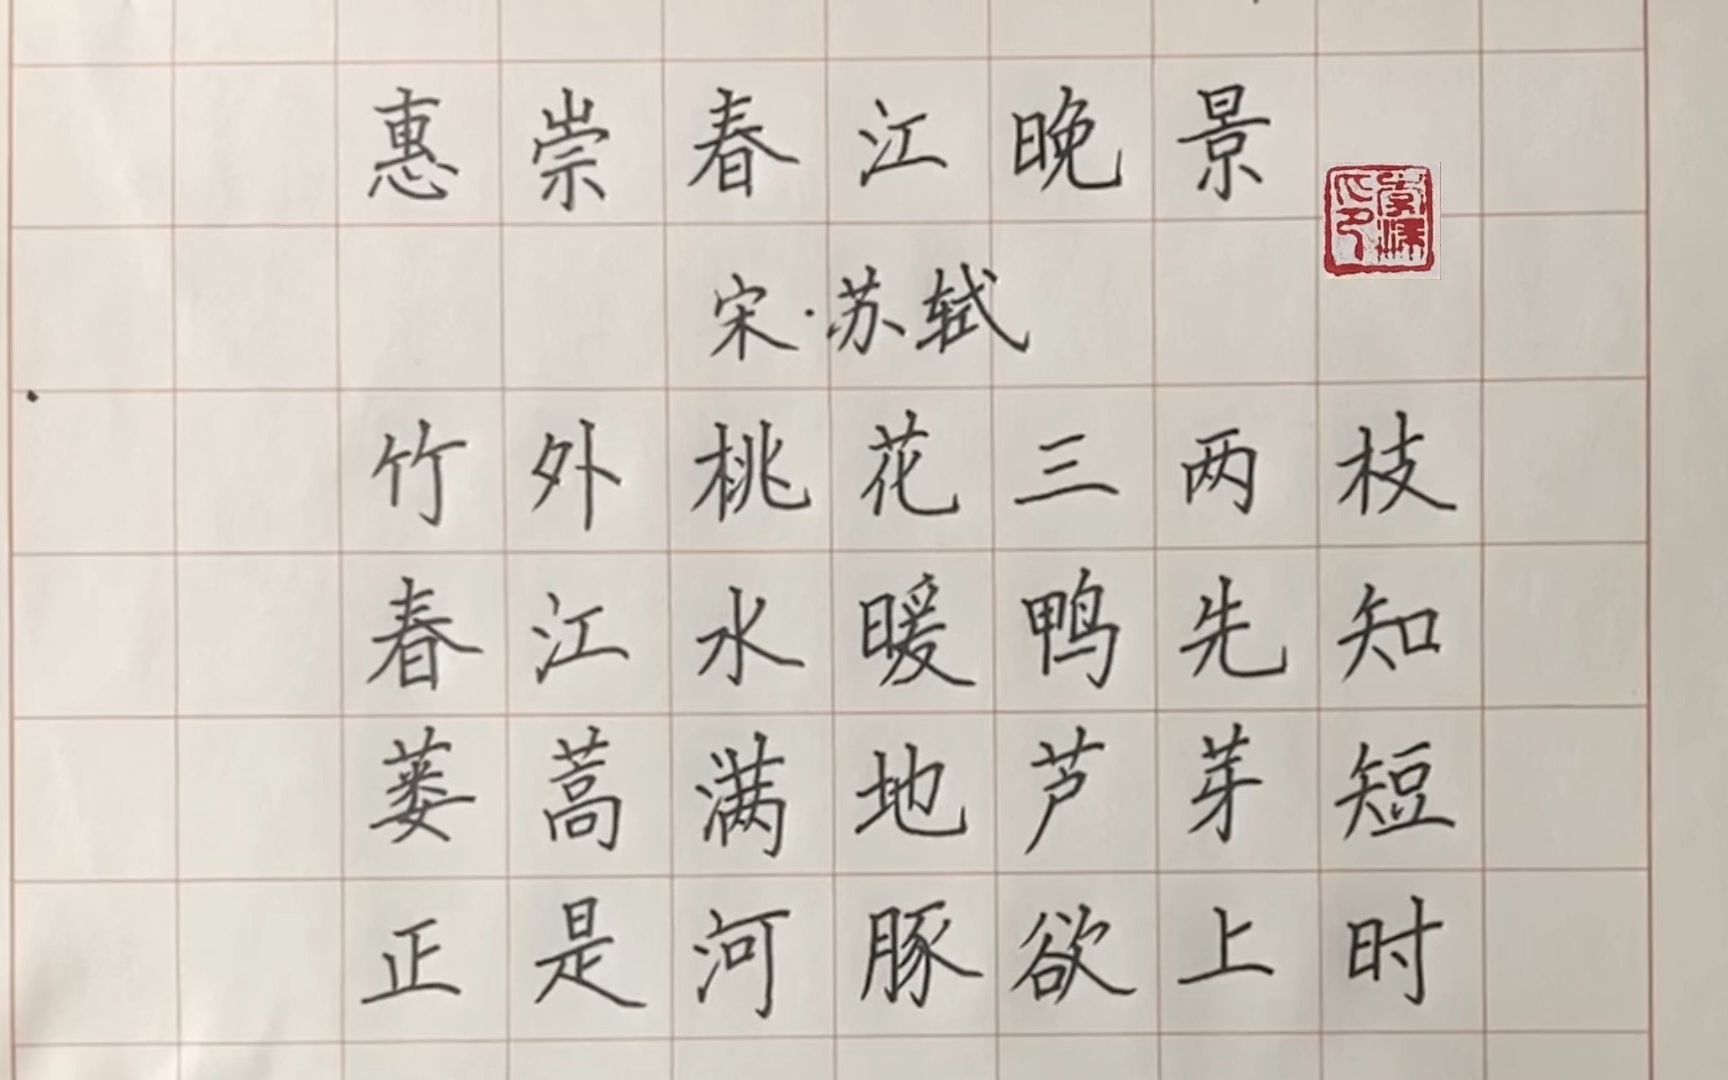 惠崇春江晚景
宋·苏轼
竹外桃花三两枝
春江水暖鸭先知
蒌蒿满地芦芽短
正是河豚欲上时